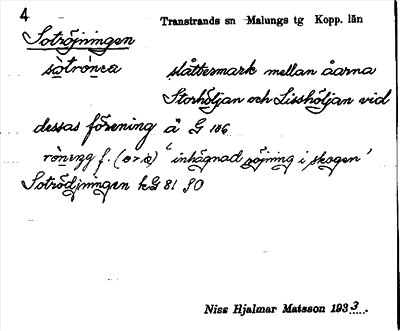 4
Transtrands sn Malungs tg Kopp. län
Sotröjningen
slåttermark mellan åarna
Storhöljan och Lisshöljan vid
dessas förening å G 186
f. (ɵ>ø) 'inhägnad röjning i skogen'
Sotrödjningen kG 81 30
Niss Hjalmar Matsson 1933.